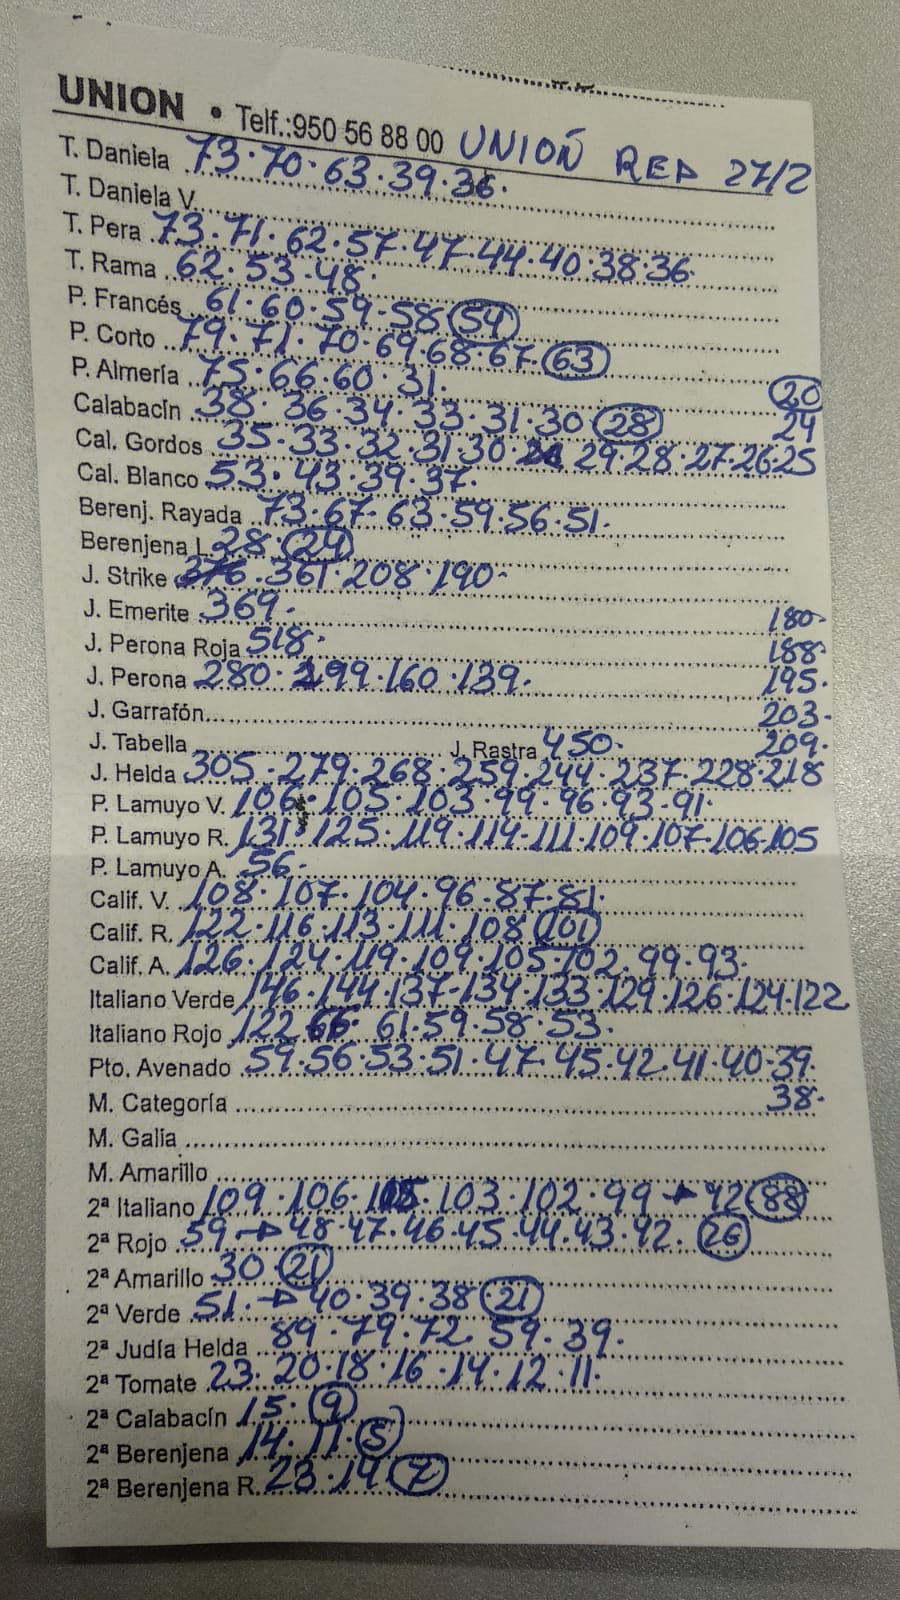 UNION • Telf.:950 56 88 00 UNIOÑ RED 27/2
T. Daniela 73.70.63.39.36.
T. Daniela V.
T. Pera 73.71.62.57.47.44.40.38.36
T. Rama 62.53.48.
P. Francés 61.60.59.58 54
P. Corto 79.71.70.69.68.67.63
P. Almería 75.66.60.31. 20
Calabacín 38.36.34.33.31.30 28 24
Cal. Gordos 35.33.32.31.30 29.28.27.26.25
Cal. Blanco 53.43.39.37.
Berenj. Rayada 73.67.63.59.56.51.
Berenjena L. 28.24
J. Strike 376.361.208.190-
J. Emerite 369. 180-
J. Perona Roja 518. 188
J. Perona 280.199.160.139. 195.
J. Garrafón 203-
J. Tabella J. Rastra 450. 209.
J. Helda 305.279.268.259.244.237.228.218
P. Lamuyo V. 106.105.103.99.96.93.91.
P. Lamuyo R. 131.125.119.114.111.109.107.106.105
P. Lamuyo A. 56.
Calif. V. 108.107.104.96.87.81.
Calif. R. 122.116.113.111.108 101
Calif. A. 126.124.119.109.105.102.99.93.
Italiano Verde 146.144.137.134.133.129.126.124.122
Italiano Rojo 122.66.61.59.58.53.
Pto. Avenado 59.56.53.51.47.45.42.41.40.39.
M. Categoría 38.
M. Galia
M. Amarillo
2ª Italiano 109.106.105.103.102.99 → 92 88
2ª Rojo 59 → 48.47.46.45.44.43.42. 26
2ª Amarillo 30 21
2ª Verde 51. → 40.39.38 21
2ª Judía Helda 89.79.72.59.39.
2ª Tomate 23.20.18.16.14.12.11.
2ª Calabacín 15. 9
2ª Berenjena 14.11.5
2ª Berenjena R. 23.14 7